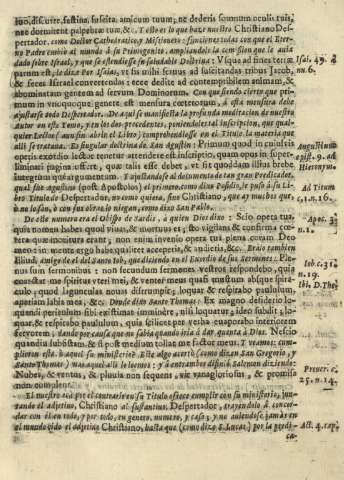 luo, discurre, festina, suscita amicum tuum, ne dederis somnum oculis tuis,
nec dormitent palpebræ tuæ, &c. Y esto es lo que haze nuestro Christiano Des-
pertador, como Doctor Cathedratico, y Missionero: funciones todas con que el Eter-
no Padre embió al mundo à su Primogenito, ampliandole la comission que le auia
dado sobre Israel, y que se estendiesse su saludable Doctrina: Vsque ad fines terræ
parum est, le dize Por Isaias, vt sis mihi seruus ad suscitandas tribus Jacob,
& feces Israel convertendas: ecce dedite ad contemptibilem animam, &
abominatam gentem ad seruum Dominorum. Con que siendo cierto que pri-
mum in vnoquoque genere est mensura cæterorum, à esta mensura debe
ajustarse todo Despertador. De aqui se manifiesta la profunda meditacion de nuestro
Autor en este Tomo, y en los dos precedentes, poniendoles tal inscripcion, que qual-
quier Lector (aun sin abrir el Libro) comprehendiesse en el Titulo la materia que
alli se trataua. Es singular doctrina de San Agustin: Primum quod in cuiusvis
operis exordio lector tenetur attendere est inscriptio, quam opus in super-
liminari pagina offert, quæ talis esse debet, vt sit quoddam illius breue
integrum que argumentum. Y ajustandose al documento de tan gran Predicador,
qual fue Agustino (post Apostolos) el primero, como dize Posidio, le puso à su Li-
bro Titulo de Despertador, no como quiera, sino Christiano, que ay muchos que
no lo son, ò con sus obras lo niegan, como dixo San Pablo.
De este numero era el Obispo de Sardis, à quien Dios dixo: Scio opera tua,
quia nomen habes quod vivas, & mortuus es; esto vigilans & confirma cœ-
tera quæ moritura erant; non enim invenio opera tua plena coram Deo
meo: in mente ergo habe qualiter acceperis, & audieris, &c. Erálo tambien
Eliud, amigo de el del Santo Iob, que diciendo en el Exordio de sus Sermones: Ple-
nus sum sermonibus: non secundum sermones vestros respondebo, quia
coarctat me spiritus vteri mei, & venter meus quasi mustum absque spira-
culo, quod lagunculas nouas disrumpit; loquar & respirabo paululum,
apetiam labia mea, &c. Donde dixo Santo Thomas: Ex magno desiderio lo-
quendi periculum sibi existimat imminere, nisi loquatur; ideo subdit: lo-
quar, & respirabo paululum, quia scilicet per verba euaporabo interiorem
fervorem: dando por causa que no sabia quando iria à dar quenta à Dios: Nescio
quandiu subsistam, & si post modicum tollat me factor meus. Y veamos: cum-
plieron estos, ò aquel su ministerio? Este algo acertò (como dizen San Gregorio, y
Santo Thomas) mas aqui alli le leemos: y à entrambos disfinió Salomon diziendo:
Nubes, & ventus, & pluuia non sequens, vir vanagloriosus, & promissa
non complens.
El nuestro acà por el contrario en su Titulo ofrece cumplir con su ministerio, jun-
tando el adjetiuo, Christiano al sustantiuo, Despertador, trayendolo à concor-
dar con el en todo, y por todo, en genero, numero, y caso, y no auiendose jamàs en
el mundo oìdo el adjetiuo Christiano, hasta que (como dize S. Lucas) por la predi-
ca-
Isai. 49.
nn. 6.
Augustin.
epist. 9. ad
Hieronym.
Ad Titum
c. 1. n. 16.
Apoc. 3.
n. 1.
Iob. c. 32.
n. 19.
Ibi, D. Tho.
Prouer. c.
25. n. 14.
Act. 4. cap.